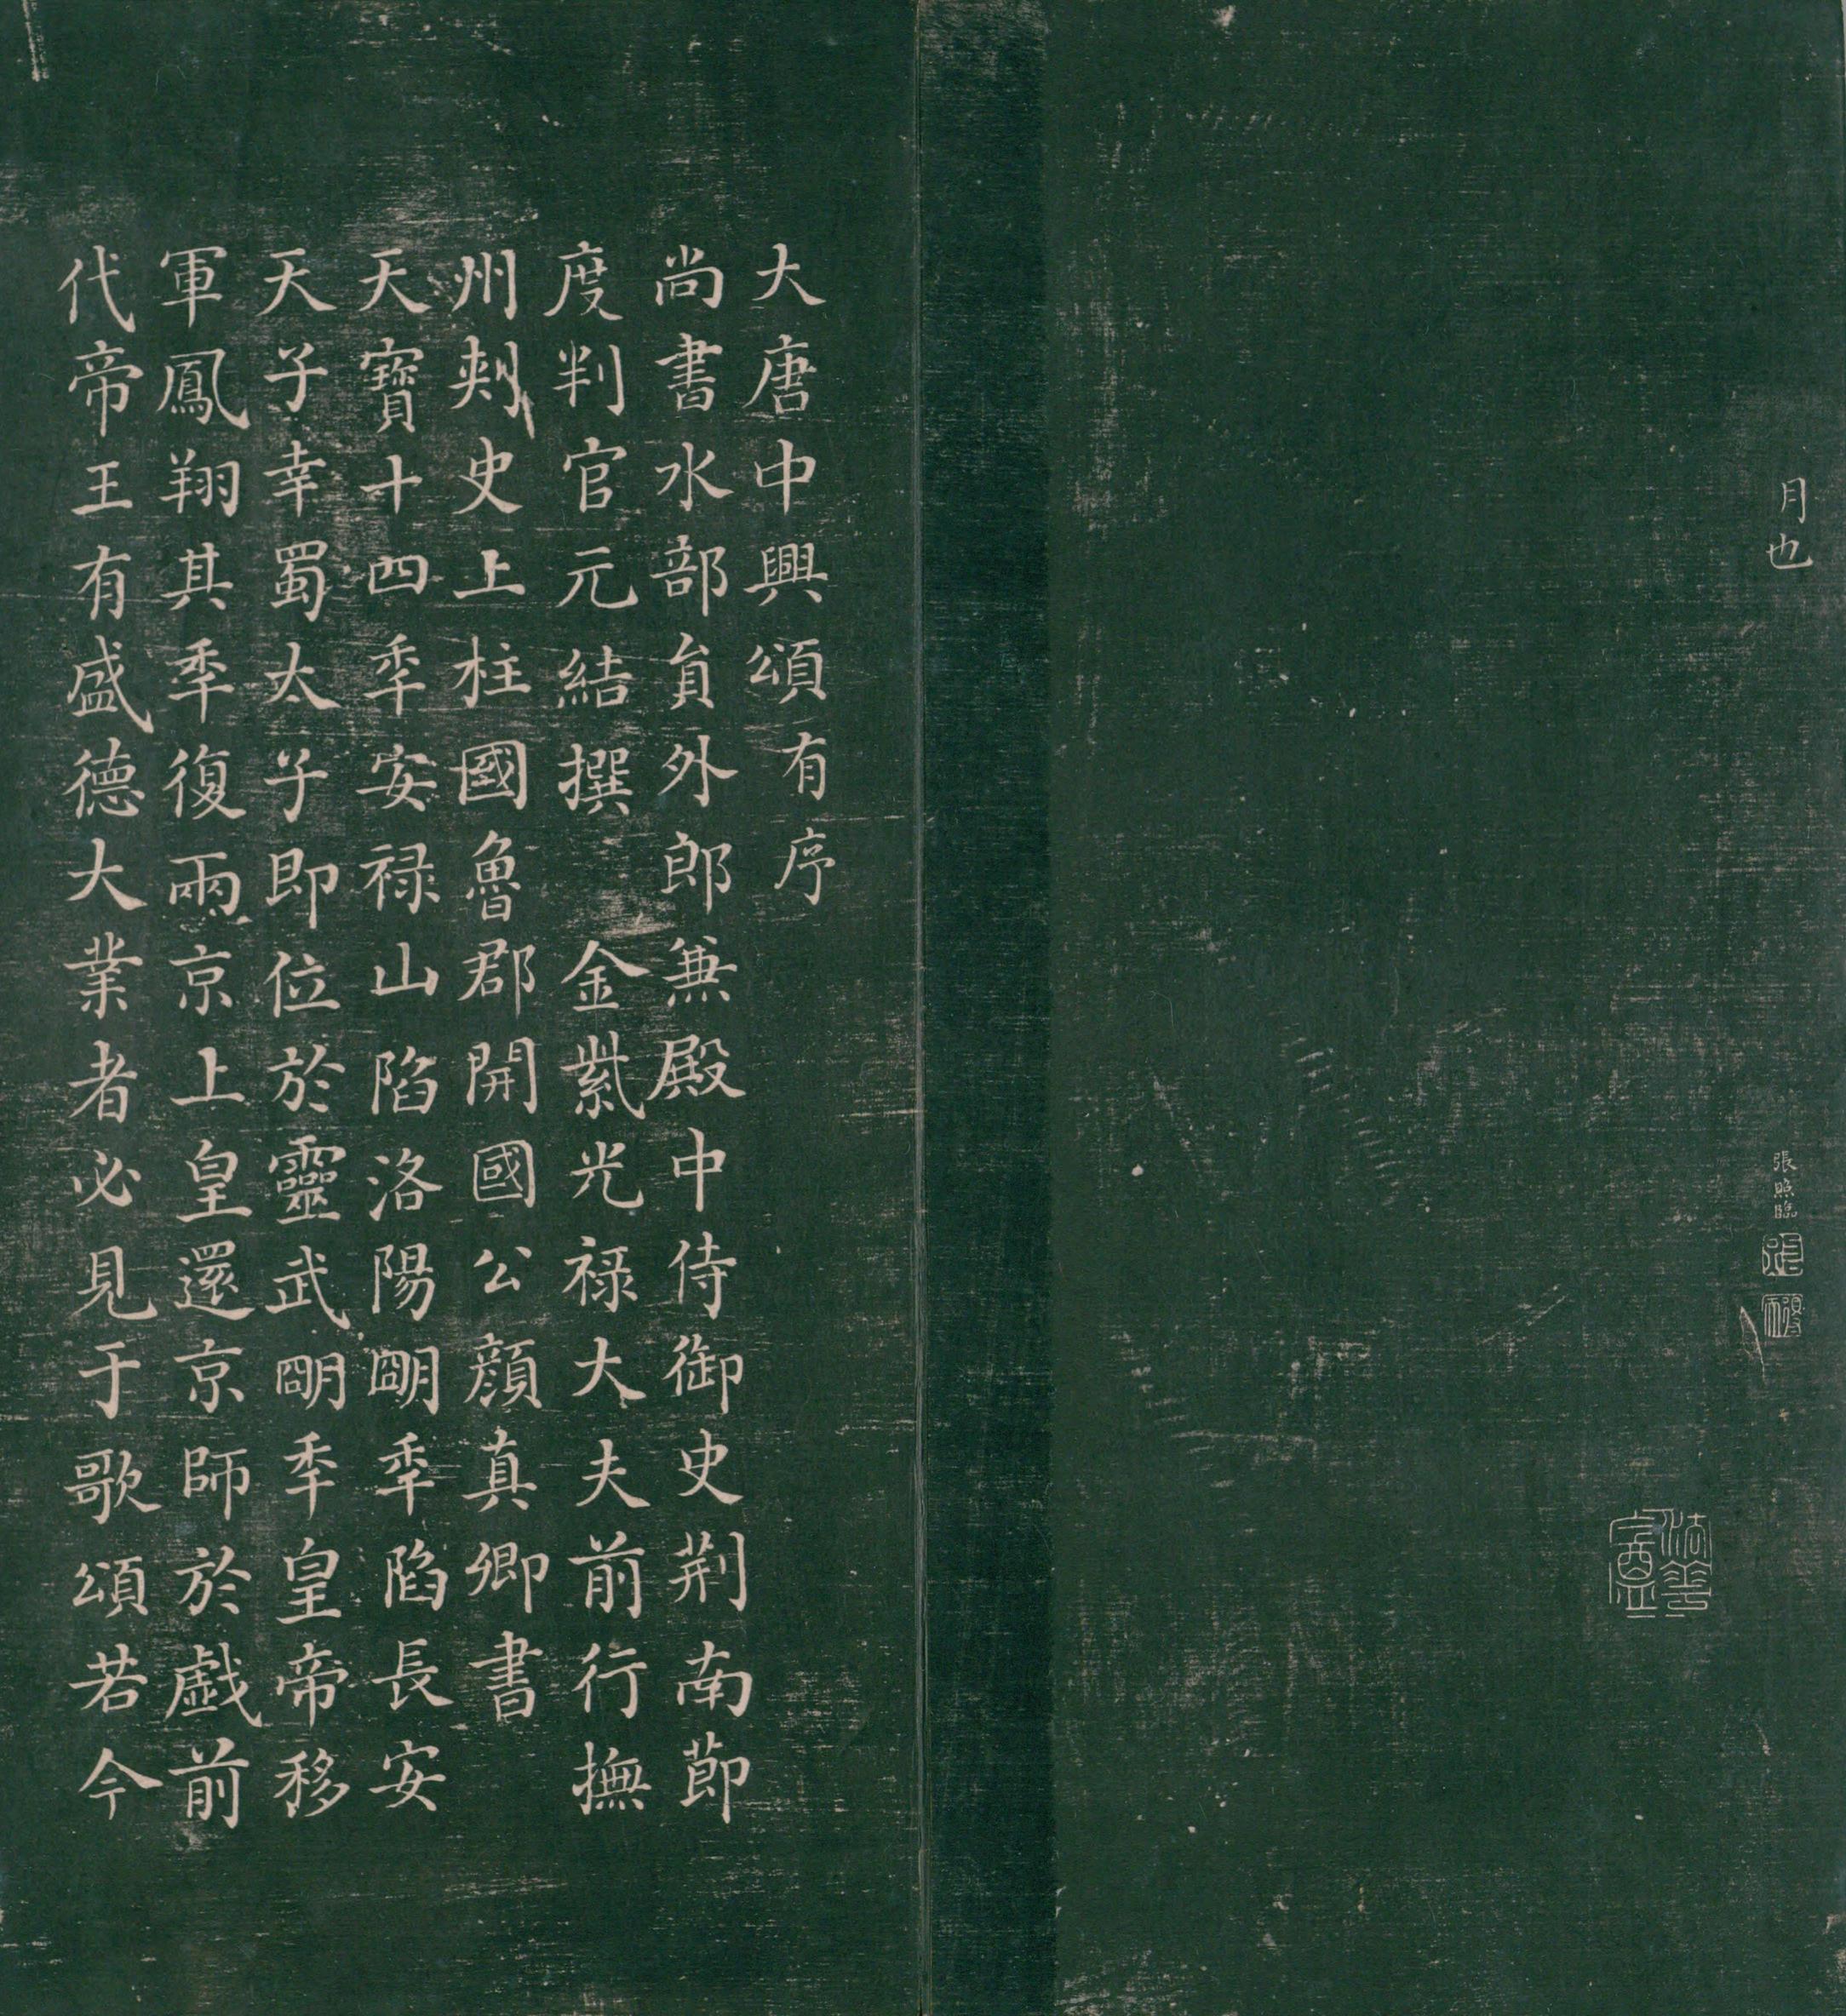 月也
張照臨
大唐中興頌有序
尚書水部員外郎兼殿中侍御史荆南節
度判官元結撰 金紫光禄大夫前行撫
州刺史上柱國魯郡開國公顔真卿書
天寶十四季安禄山陷洛陽朙季陷長安
天子幸蜀太子即位於靈武朙季皇帝移
軍鳳翔其季復兩京上皇還京師於戲前
代帝王有盛德大業者必見于歌頌若今